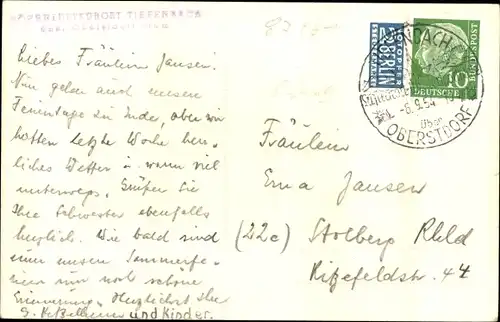 TIEFENBACH
über
Liebes Fräulein Jansen!
Nun gehen auch unsere
Ferientage zu Ende, aber wir
hatten letzte Woche herr-
liches Wetter u. waren viel
unterwegs. Grüßen Sie
Ihre Schwester ebenfalls
herzlich. Wie bald sind
nun unsere Sommerfe-
rien nur noch schöne
Erinnerung. Herzlichst Ihre
und Kinder.
2 NOTOPFER
BERLIN
STEUERMARKE
DEUTSCHE
BUNDESPOST
10
-6.9.54
über
OBERSTDORF
Fräulein
Erna Jansen
(22c) Stolberg Rhld
Ritzefeldstr. 44